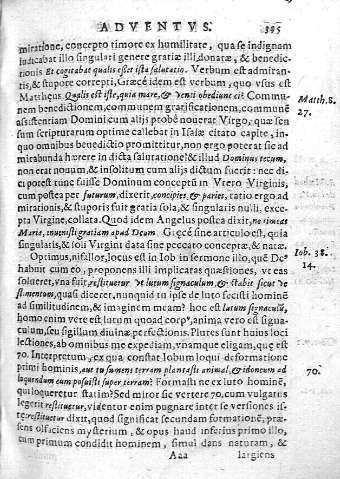 ADVENTVS. 395
miratione, concepto timore ex humilitate, qua se indignam
indicabat illo singulari genere gratiæ illi, donatæ, & benedic-
tionis Et cogitabat qualis esset ista salutatio. Verbum est admiran-
tis, & stupore correpti, Græcè idem est verbum, quo vsus est
Mattheus Qualis est iste, quia mare, & venti obediunt ei? Commu-
nem benedictionem, communem gratificationem, communē
assistentiam Domini cum alijs probè nouerat Virgo, quæ sen
sum scripturarum optime callebat in Isaiæ citato capite, in-
quo omnibus benedictio promittitur, non ergo poterat sic ad
mirabunda hærere in dicta salutatione! & illud Dominus tecum,
non erat nouum, & insolitum cum alijs dictum fuerit: nec di-
ci potest tunc fuisse Dominum conceptū in Vtero Virginis,
cum postea per futurum, dixerit, concipies, & paries, ratio ergo ad
mirationis, & stuporis fuit gratia sola, & singularis nulli, exce-
pta Virgine, collata. Quod idem Angelus postea dixit, no timeas
Maria, inuenisti gratiam apud Deum. Grecè sine articulo est, quia
singularis, & soli Virgini data sine peccato conceptæ, & natæ.
Optimus, nifallor, locus est in Iob in sermone illo, quē De⁹
habuit cum eo, proponens illi implicatas quæstiones, vt eas
solueret, vna fuit, restituetur vt lutum signaculum, & stabit sicut ve
stimentum, quasi diceret, nunquid tu ipse de luto fecisti hominē
ad similitudinem, & imaginem meam? hoc est lutum signaculū,
homo enim vere est lutum quoad corp⁹, anima vero est signa-
culum, seu sigillum diuinæ perfectionis. Plures sunt huius loci
lectiones, ab omnibus me expediam, vnamque eligam, quæ est
70. Interpretum, ex qua constat Iobum loqui de formatione
primi hominis, aut tu sumens terram plantasti animal, & idoneum ad
loquendum eum posuisti super terram? Formasti ne ex luto hominē,
qui loqueretur statim? Sed miror sic vertere 70. cum vulgatus
legerit restituetur, videntur enim pugnare inter se versiones is-
te, restituetur dixit, quod significat secundam formationē, præ-
sens olfaciens mysterium, & opus haud inferius primo illo,
cum primum condidit hominem, simul dans naturam, &
Aaa largiens
Matth. 8.
27.
Iob. 38.
14.
70.